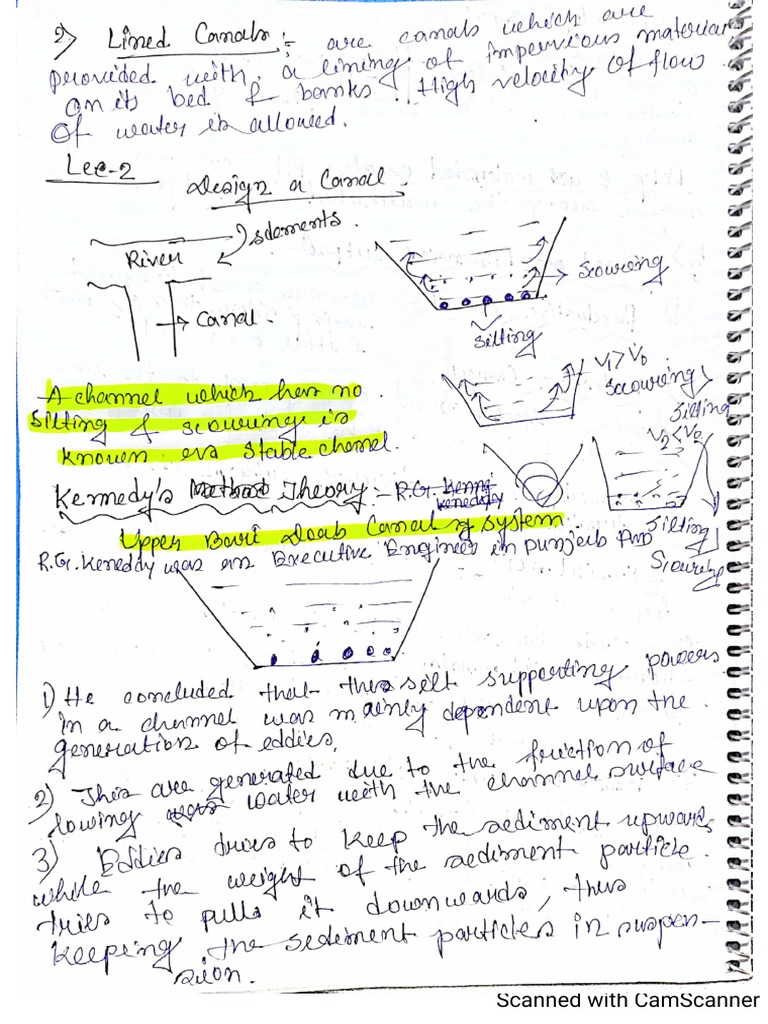 2) Lined Canals :- are canals which are
provided with a lining of impervious material
on its bed & banks. High velocity of flow
of water is allowed.
Lec-2
Design a Canal
River
Canal
Scouring
Silting
V1 > V0
Scouring
Silting
V2 < V0
Silting
Scouring
A channel which has no
silting & scouring is
known as stable channel.
Kennedy's Theory :- R.G.
Upper Bari Doab Canal system
R.G. Keneddy was an Executive Engineer in Punjab PWD
1) He concluded that the silt supporting powers
in a channel was mainly dependent upon the
generation of eddies,
2) This are generated due to the friction of
lowing water with the channel surface
3) Eddies tries to keep the sediment upwards
while the weight of the sediment particle
tries to pulls it downwards, thus
keeping the sediment particles in suspen-
sion.
Scanned with CamScanner